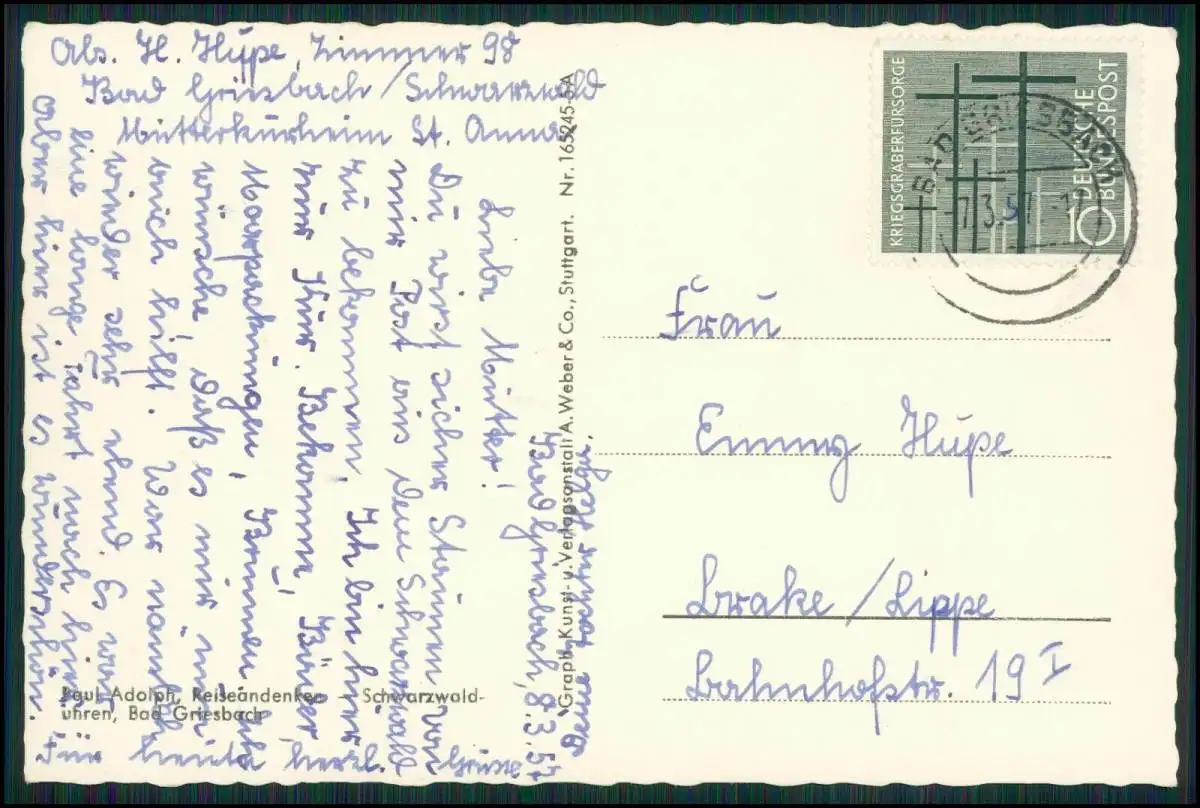 Abs. H. Hüpe, Zimmer 98
Bad Griesbach/Schwarzwald
Mütterkurheim St. Anna
Bad Griesbach, 8.3.57
Liebe Mutter!
Du wirst sicher Staunen von
mir Post aus dem Schwarzwald
zu bekommen. Ich bin hier
zur Kur. Bekomme, Bäder,
Moorpackungen, Brunnen. Ich
wünsche, daß es mir nun
auch hilft. War nämlich
wieder sehr elend. Es war
eine lange Fahrt nach hier
aber hier ist es wunderschön.
Für heute herzl. Grüße
Deine Tochter Helga.
Paul Adolph, Reiseandenken Schwarzwald-
uhren, Bad Griesbach
Graph. Kunst- u. Verlagsanstalt A. Weber & Co., Stuttgart. Nr. 165245-5 A
KRIEGSGRÄBERFÜRSORGE
DEUTSCHE
BUNDESPOST
10
BAD GRIESBACH
-7.3.57
Frau
Emmy Hüpe
Brake/Lippe
Bahnhofstr. 19 I